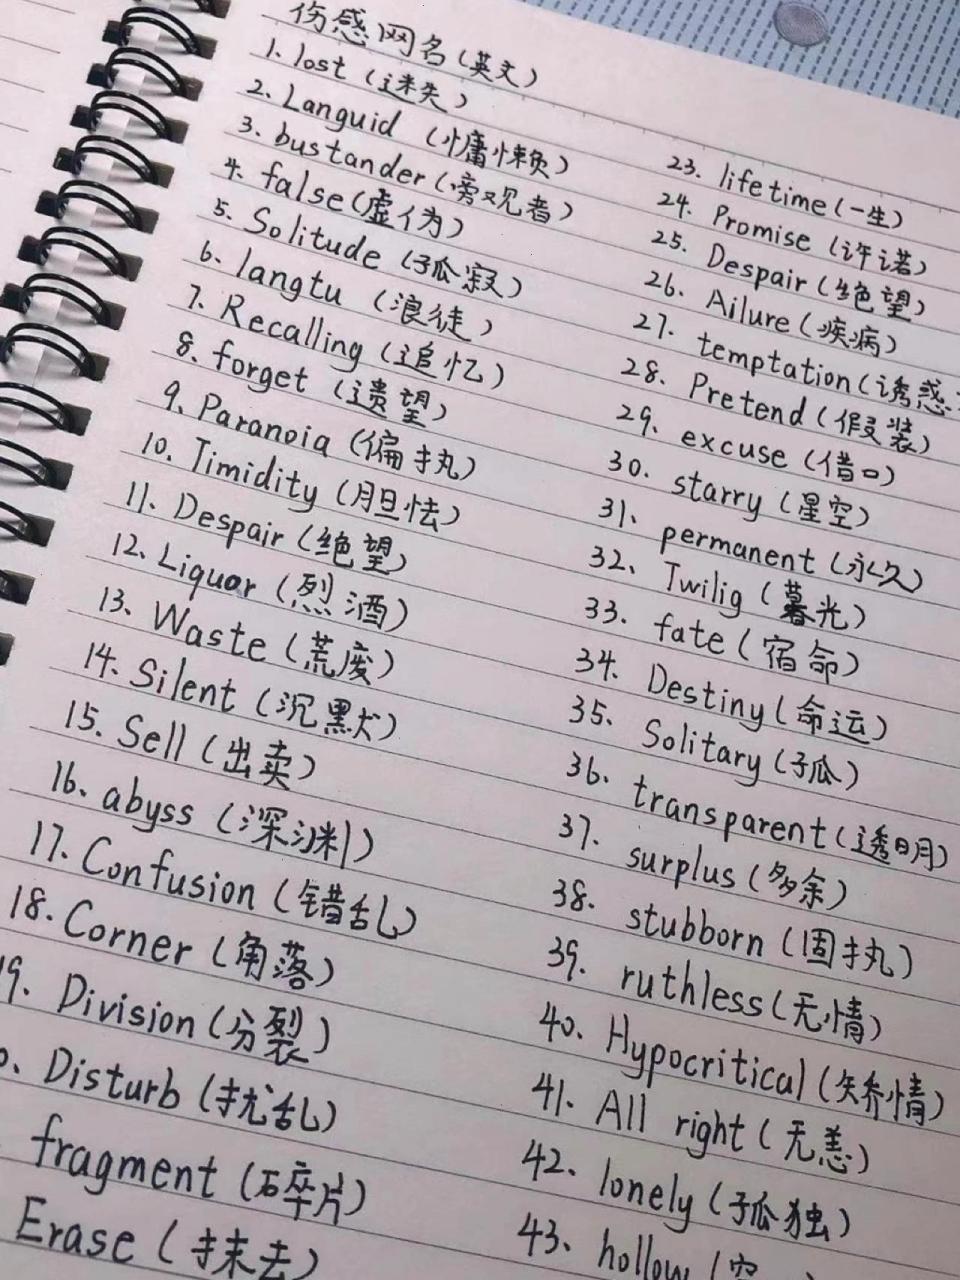 伤感网名(英文)
1. lost (迷失)
2. Languid (慵懒)
3. bustander (旁观者)
4. false (虚伪)
5. Solitude (孤寂)
6. langtu (浪徒)
7. Recalling (追忆)
8. forget (遗望)
9. Paranoia (偏执)
10. Timidity (胆怯)
11. Despair (绝望)
12. Liquor (烈酒)
13. Waste (荒废)
14. Silent (沉默)
15. Sell (出卖)
16. abyss (深渊)
17. Confusion (错乱)
18. Corner (角落)
19. Division (分裂)
0. Disturb (扰乱)
fragment (碎片)
Erase (抹去)
23. lifetime (一生)
24. Promise (许诺)
25. Despair (绝望)
26. Ailure (疾病)
27. temptation (诱惑
28. Pretend (假装)
29. excuse (借口)
30. starry (星空)
31. permanent (永久)
32. Twilig (暮光)
33. fate (宿命)
34. Destiny (命运)
35. Solitary (孤)
36. transparent (透明)
37. surplus (多余)
38. stubborn (固执)
39. ruthless (无情)
40. Hypocritical (矫情)
41. All right (无恙)
42. lonely (孤独)
43. hollow (